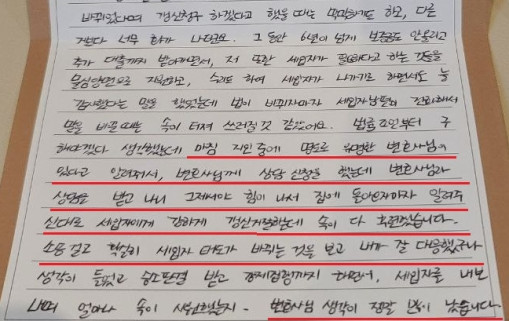 바뀌었다며 갱신청구 하겠다고 했을 때는 막막하기도 하고, 다른
것보다 너무 화가 나더라고요. 그 동안 6년이 넘게 보증금도 안올리고
추가 대출까지 받아가면서, 저 또한 세입자가 필요하다고 하는 것들을
물심양면으로 지원하고, 수리도 하여 세입자가 나가기로 하면서도 늘
감사했다는 말을 했었는데 법이 바뀌자마자 세입자 전화해서
말을 바꿀 때는 속이 터져 쓰러질 것 같았어요. 법률 조언부터 구
해야겠다 생각했는데 마침 지인 중에 명도로 유명한 변호사님이
있다고 알려줘서, 변호사님께 상담 신청을 했는데 변호사님과
상담을 받고 나니 그제서야 힘이 나서 집에 돌아오자마자 알려주
신대로 세입자에게 강하게 갱신거절하는데 속이 다 후련했습니다.
소송 걸고 확실히 세입자 태도가 바뀌는 것을 보고 내가 잘 대응했구나
생각이 들었고 승소판결 받고 강제집행까지 하면서, 세입자를 내보
내며 얼마나 속이 시원했는지. 변호사님 생각이 정말 많이 났습니다.